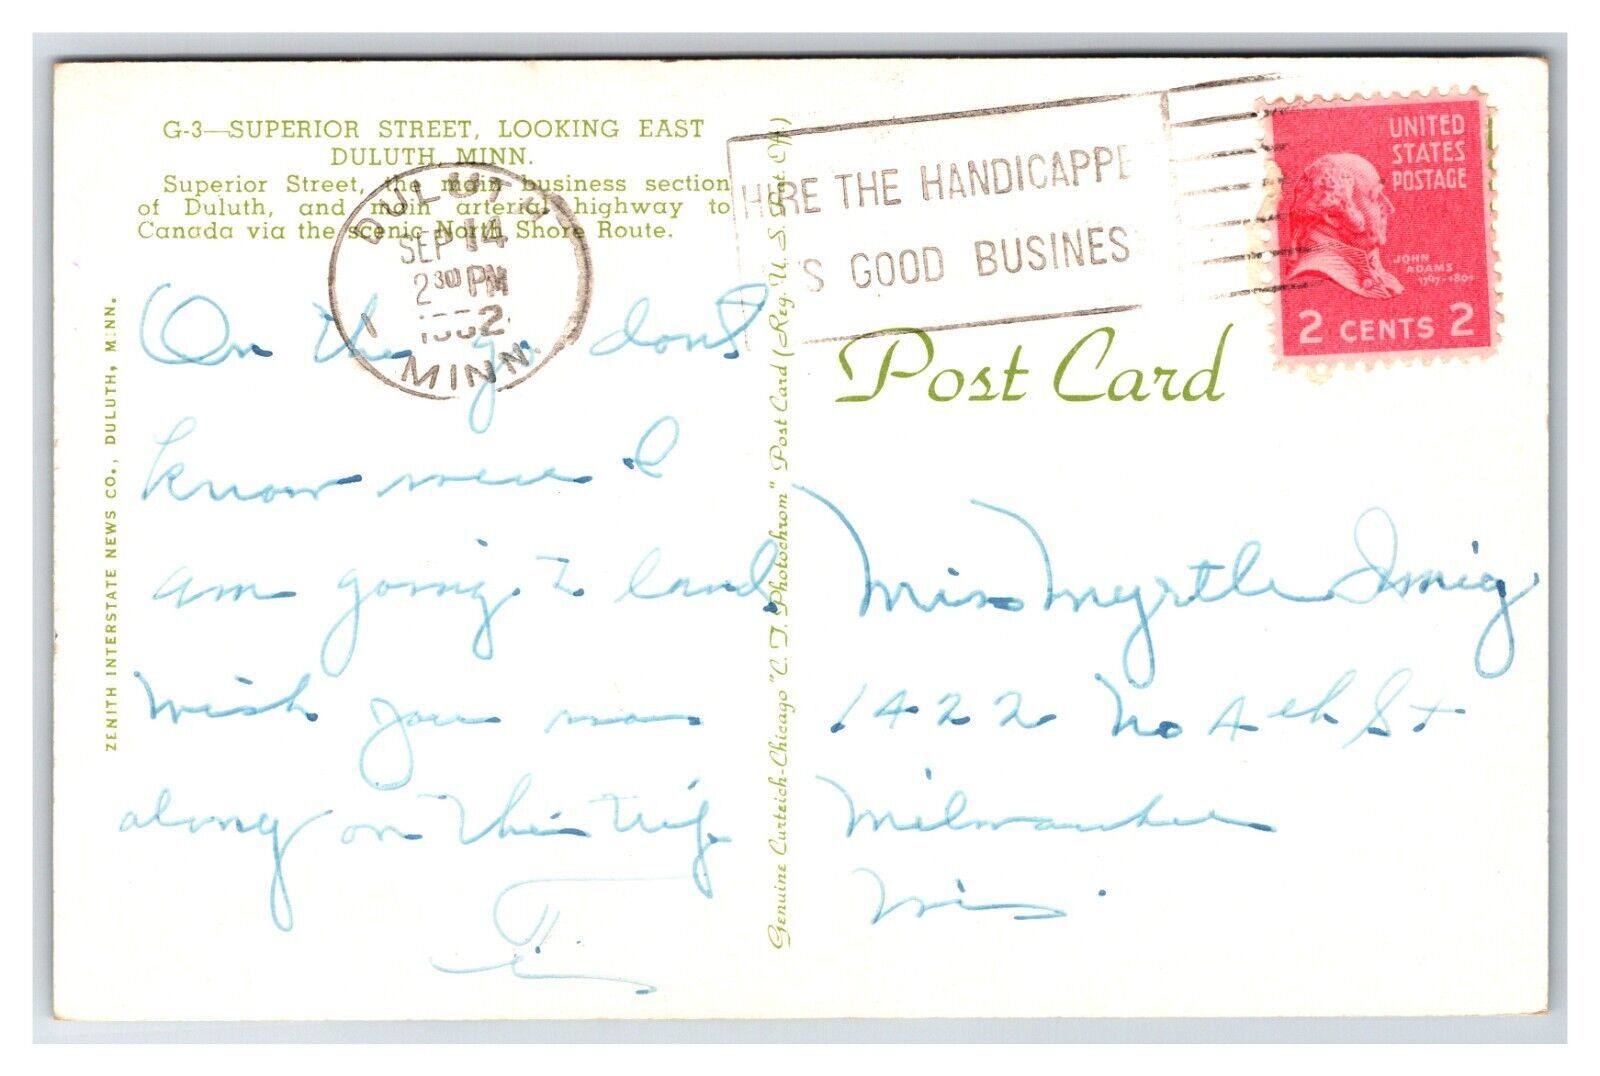 G-3—SUPERIOR STREET, LOOKING EAST
DULUTH, MINN.
Superior Street, the main business section
of Duluth, and main arterial highway to
Canada via the scenic North Shore Route.
DULUTH
SEP 14
2 30 PM
1952
MINN.
HIRE THE HANDICAPPE
IS GOOD BUSINES
UNITED
STATES
POSTAGE
JOHN
ADAMS
1797-1801
2 CENTS 2
Post Card
On the go dont
know were I
am going to land,
wish you was
along on this trip
Miss Myrtle Imig
1422 No 4th St
Milwaukee
Wis.
ZENITH INTERSTATE NEWS CO., DULUTH, MINN.
Genuine Curteich-Chicago "C. T. Photochrom" Post Card (Reg. U. S. Pat. Off.)